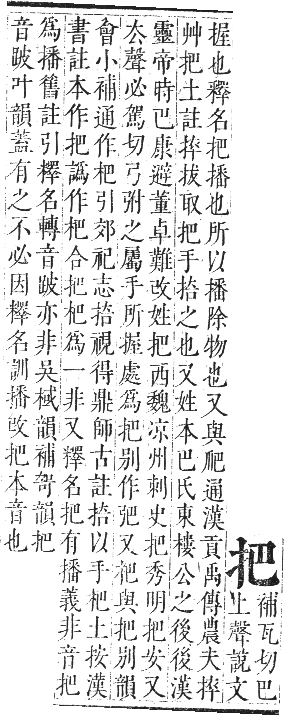 把
補瓦切巴
上聲說文
握也釋名把播也所以播除物也又與爬通漢貢禹傳農夫捽
艸把土註捽拔取把手掊之也又姓本巴氏東樓公之後後漢
靈帝時巴康避董卓難改姓把西魏凉州刺史把秀明把安又
去聲必駕切弓弣之屬手所握處爲把別作弝又杷與把別韻
會小補通作杷引郊祀志掊視得鼎師古註掊以手杷土按漢
書註本作把譌作杷合把杷爲一非又釋名把有播義非音把
爲播舊註引釋名轉音跛亦非吴棫韻補哿韻把
音跛叶韻蓋有之不必因釋名訓播改把本音也